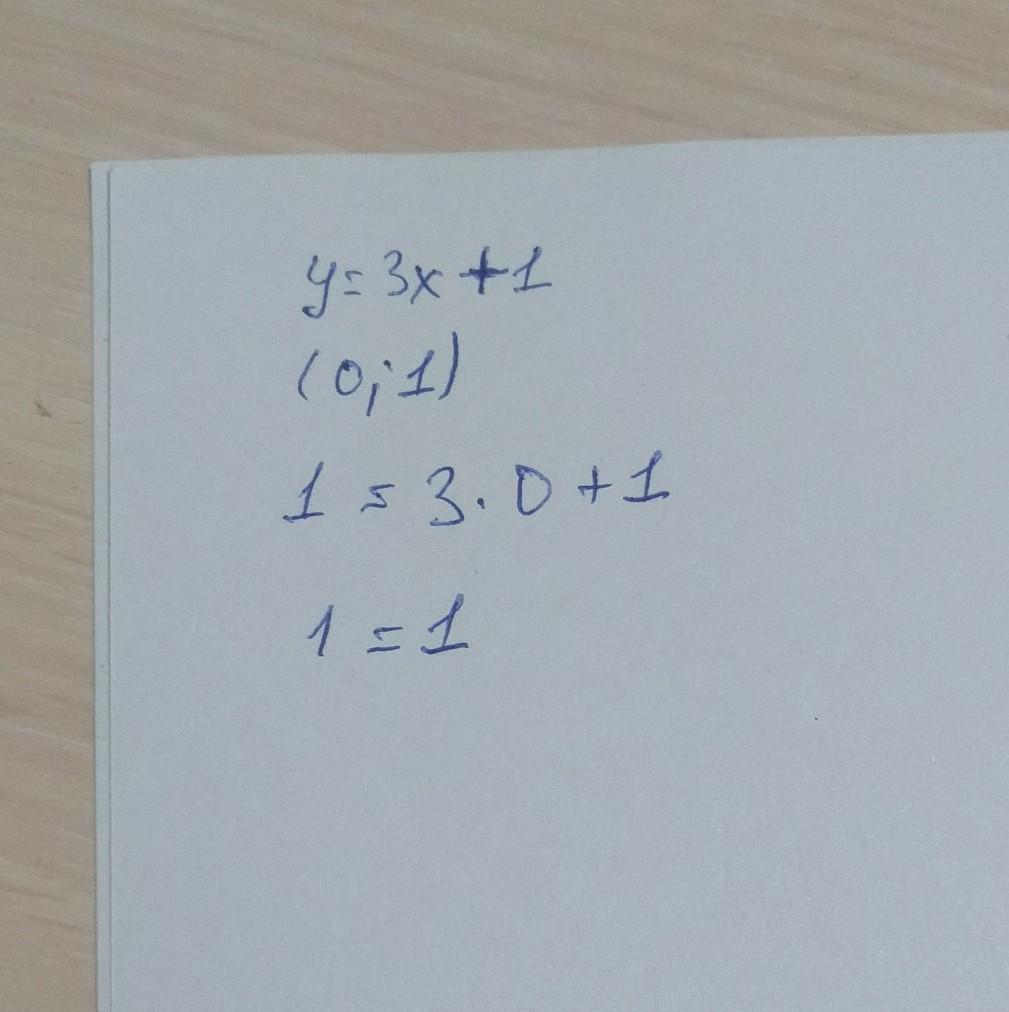 y = 3x + 1
(0; 1)
1 = 3 · 0 + 1
1 = 1